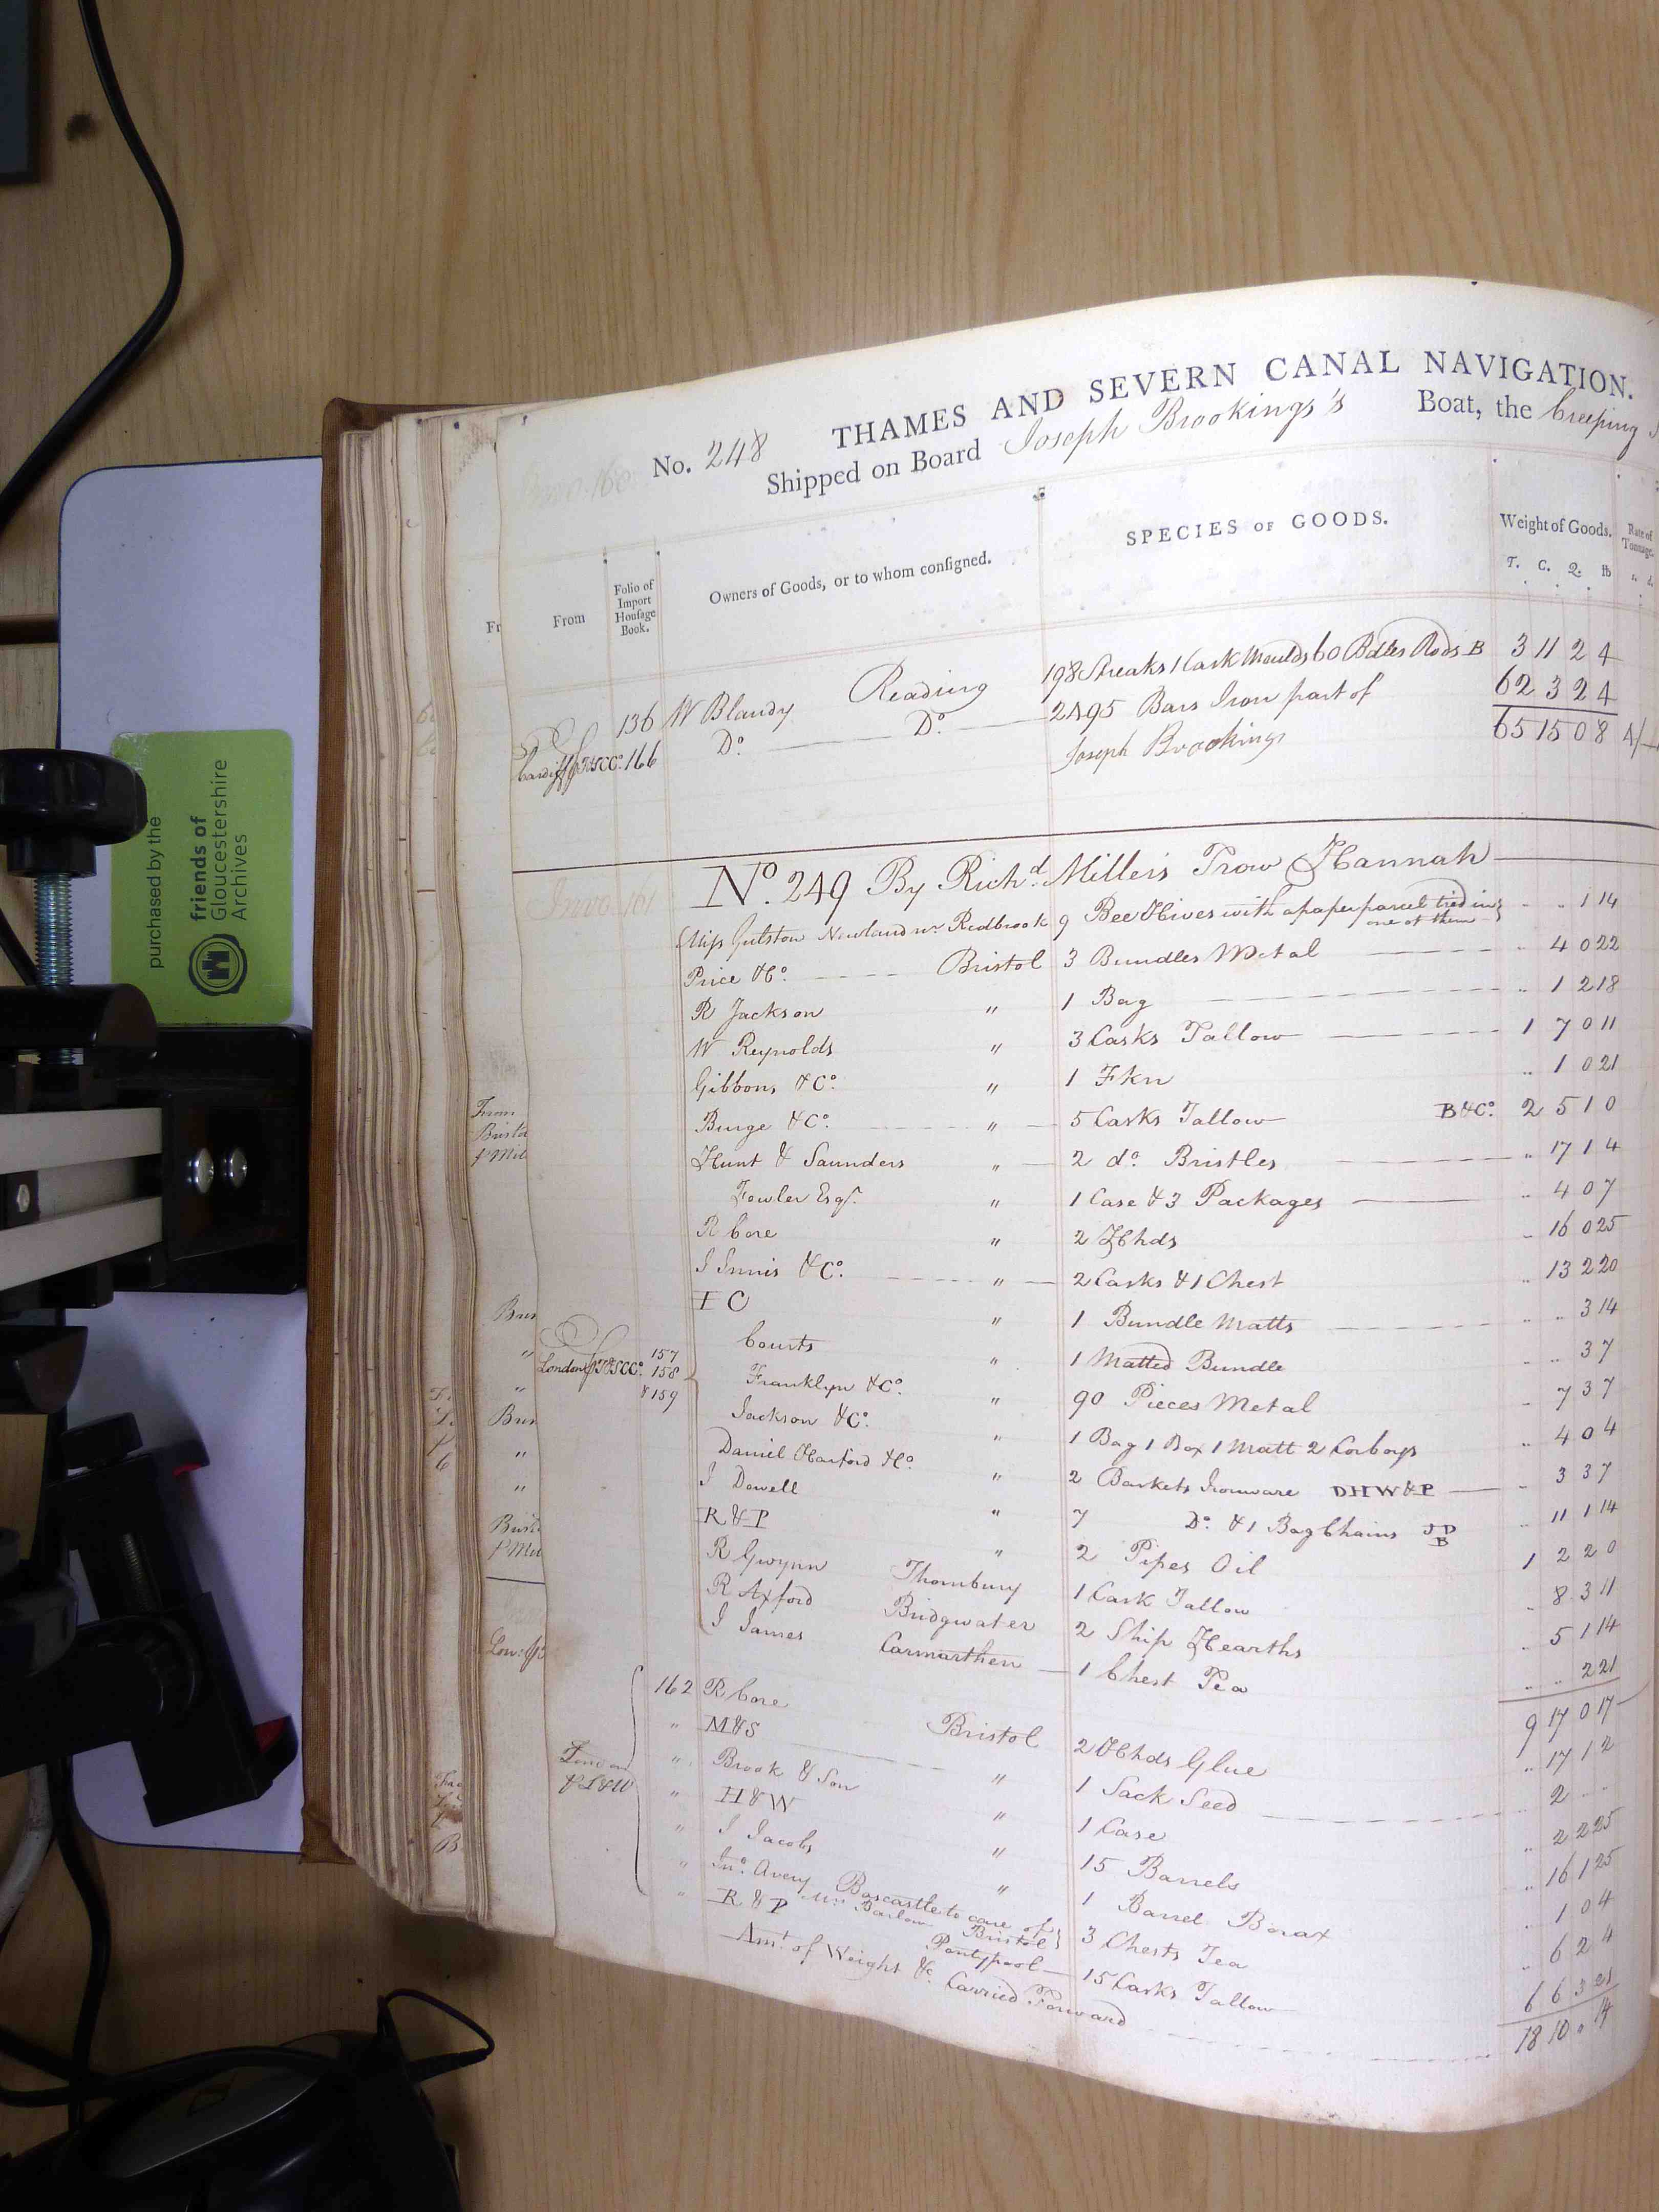 THAMES AND SEVERN CANAL NAVIGATION.
No. 248 Shipped on Board Joseph Brookings's Boat, the Creeping
From Folio of Import Housage Book. Owners of Goods, or to whom consigned. SPECIES OF GOODS. Weight of Goods. Rate of Tonnage.
T. C. Q. lb s. d.
136 W Blandy Reading 198 Streaks 1 Cask Moulds 60 Bdles Rods B 3 11 2 4
Cardiff P T&SCCo. 166 Do. Do. 2495 Bars Iron part of 62 3 2 4
Joseph Brookings 65 15 0 8 4/
Invo. 161 No. 249 By Richd. Miller's Trow Hannah
Miss Gulston Newland nr Redbrook 9 Bee Hives with a paper parcel tied in one of them .. .. 1 14
Price & Co. Bristol 3 Bundles Metal .. 4 0 22
R Jackson " 1 Bag .. 1 2 18
W Reynolds " 3 Casks Tallow 1 7 0 11
Gibbons & Co. " 1 Fkn .. 1 0 21
Burge & Co. " 5 Casks Tallow B&Co. 2 5 1 0
Hunt & Saunders " 2 do. Bristles .. 17 1 4
Fowler Esqr. " 1 Case & 3 Packages .. 4 0 7
R Core " 2 Hhds .. 16 0 25
J Innis & Co. " 2 Casks & 1 Chest .. 13 2 20
I C " 1 Bundle Matts .. .. 3 14
157 Courts " 1 Matted Bundle .. .. 3 7
London P T&SCCo. 158 Franklyn & Co. " 90 Pieces Metal .. 7 3 7
& 159 Jackson & Co. " 1 Bag 1 Box 1 Matt 2 Carboys .. 4 0 4
Daniel Harford & Co. " 2 Baskets Ironware DHW&P .. 3 3 7
J Dowell " 7 Do. & 1 Bag Chains JD B .. 11 1 14
R & P " 2 Pipes Oil 1 2 2 0
R Gwynn Thornbury 1 Cask Tallow .. 8 3 11
R Axford Bridgwater 2 Ship Hearths .. 5 1 14
J James Carmarthen 1 Chest Tea .. .. 2 21
9 17 0 17
162 R Core Bristol 2 Hhds Glue .. 17 1 2
" M&S " 1 Sack Seed .. 2 ..
London P L&W " Brook & Son " 1 Case .. 2 2 25
" H&W " 15 Barrels .. 16 1 25
" J Jacobs " 1 Barrel Borax .. 1 0 4
" Jno. Avery Boscastle to care of Mrs Barlow Bristol 3 Chests Tea .. 6 2 4
" R & P Pontypool 15 Casks Tallow 6 6 3 21
Amt. of Weight &c. Carried Forward 18 10 " 14
purchased by the
friends of
Gloucestershire
Archives